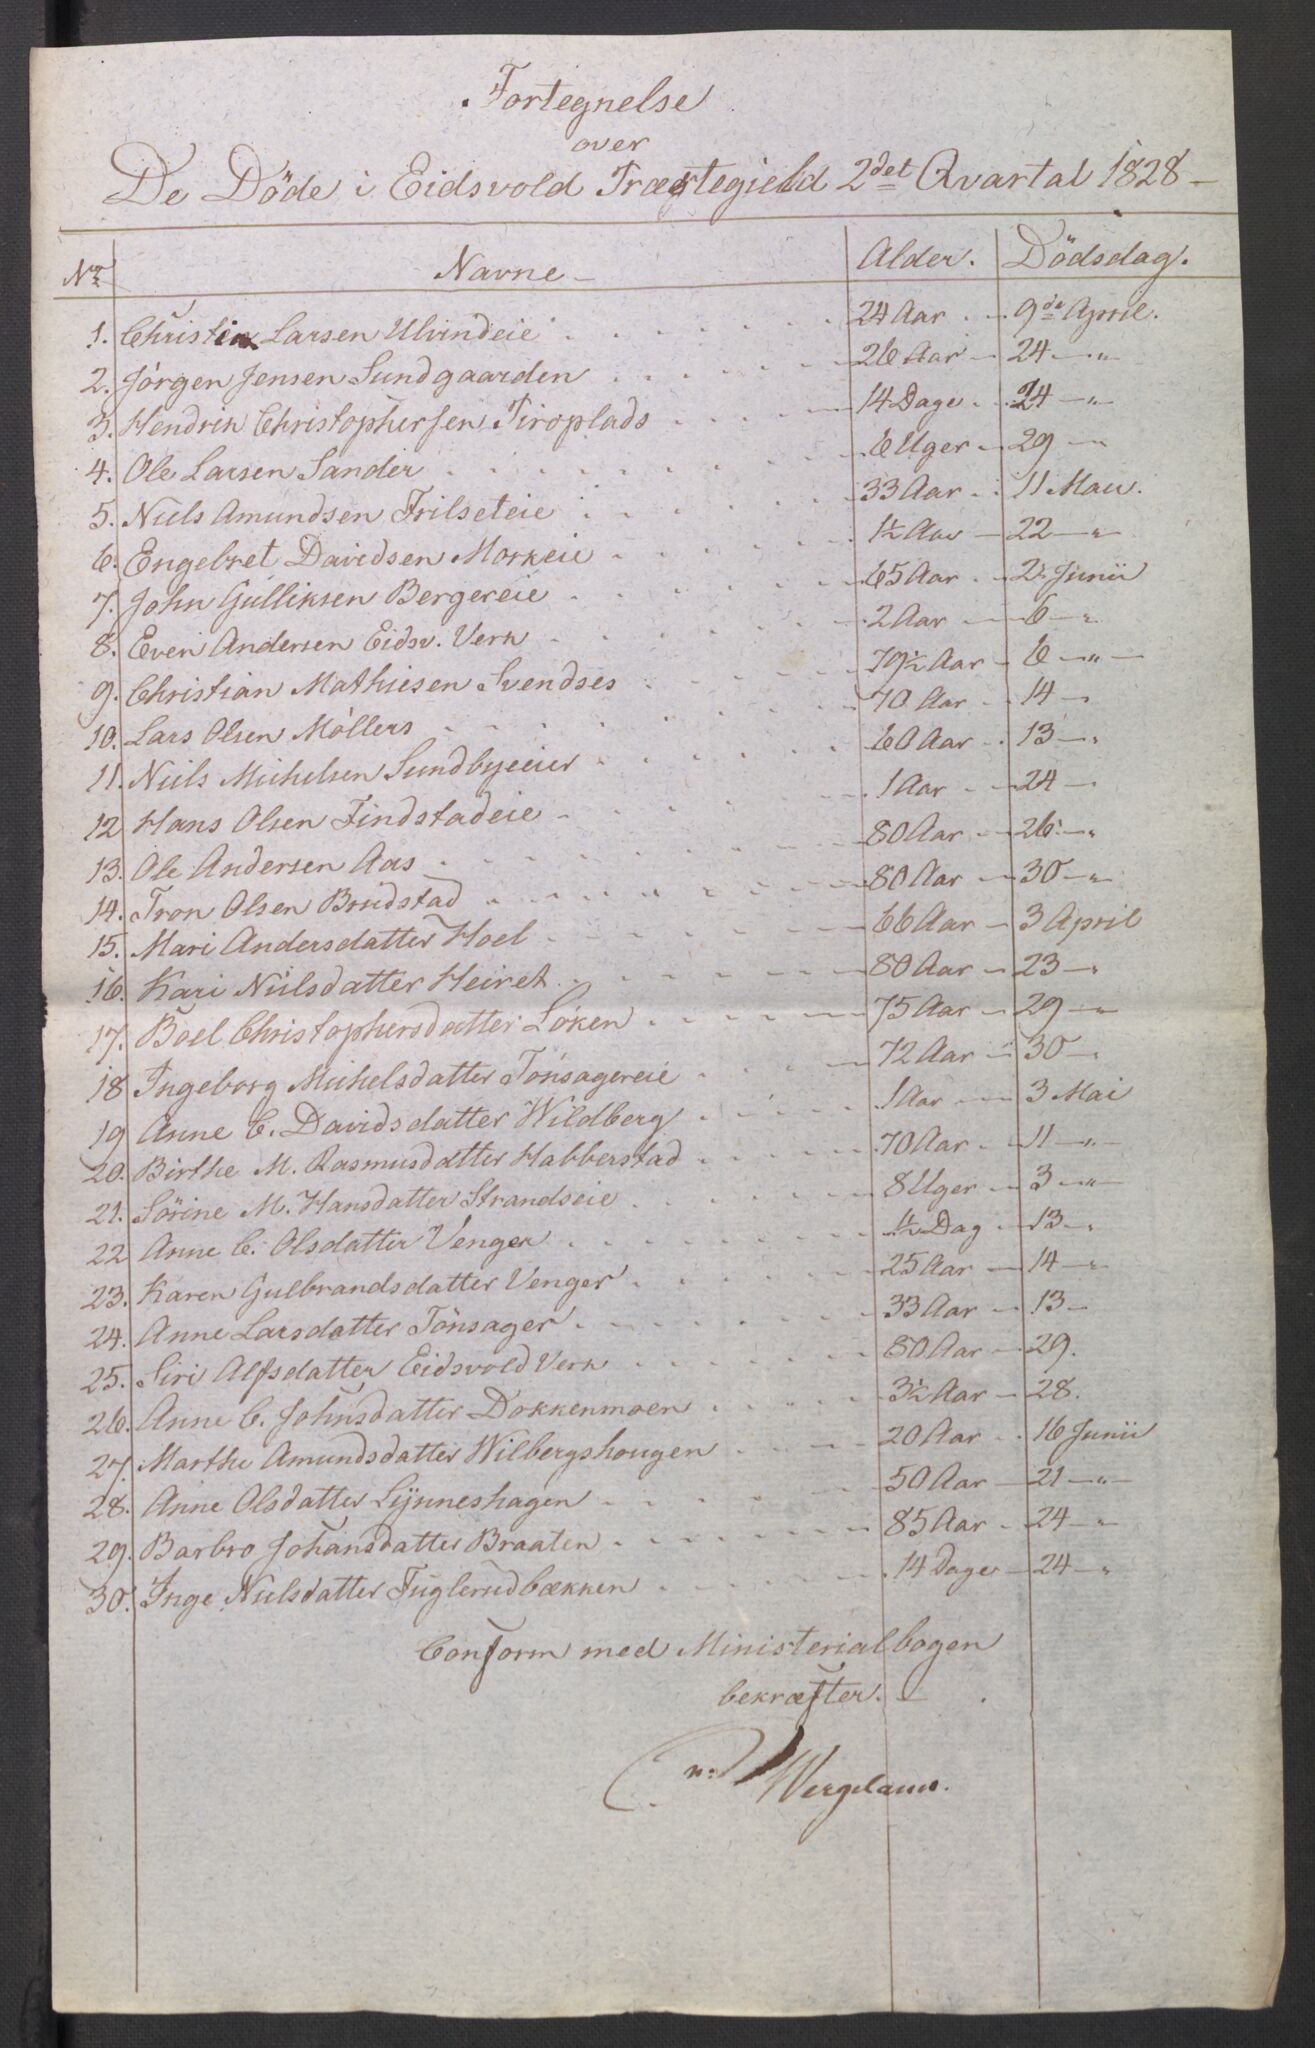 Fortegnelse
over
De Döde i Eidsvold Præstegield 2det Qvartal 1828 –
No Navne – Alder. Dödsdag.
1. Christian Larsen Ulvindeie 24 Aar 9de April.
2. Jörgen Jensen Sundgaarden 26 Aar 24 — "
3. Hendrik Christophersen Piroplads 14 Dage 24 — "
4. Ole Larsen Sander 6 Uger 29 — "
5. Niels Amundsen Frilseteie 33 Aar 11 Maii.
6. Engebret Davidsen Morkeie 1½ Aar 22 — "
7. John Gulliksen Bergereie 65 Aar 2. Junii
8. Even Andersen Eidsv. Verk 2 Aar 6 — "
9. Christian Mathiesen Svendses 79½ Aar 6 — " —
10. Lars Olsen Möllers 70 Aar 14 —
11. Niels Michelsen Sundbyeeier 60 Aar 13 — "
12 Hans Olsen Findstadeie 1 Aar 24 —
13. Ole Andersen Aas 80 Aar 26 — "
14. Tron Olsen Brudstad 80 Aar 30 — "
15. Mari Andersdatter Hoel 66 Aar 3 April
16. Kari Nielsdatter Heiret 80 Aar 23 — "
17. Boel Christophersdatter Löken 75 Aar 29 — "
18 Ingeborg Michelsdatter Tönsagereie 72 Aar 30 — "
19 Anne C. Davidsdatter Wildberg 1 Aar 3 Mai
20. Birthe M. Rasmusdatter Habberstad 70 Aar 11 — " —
21. Sörine M. Hansdatter Strandseie 8 Uger 3 — " —
22 Anne C. Olsdatter Venger ½ Dag 13 — "
23. Karen Gulbrandsdatter Venger 25 Aar 14 — "
24. Anne Larsdatter Tönsager 33 Aar 13 —
25. Siri Alfsdatter Eidsvold Verk 80 Aar 29.
26. Anne C. Johnsdatter Dokkenmoen 3½ Aar 28.
27. Marthe Amundsdatter Wilbergshougen 20 Aar 16 Junii
28. Anne Olsdatter Lÿnneshagen 50 Aar 21 — " —
29. Barbro Johansdatter Braaten 85 Aar 24 — "
30. Inge Nielsdatter Fuglerudbækken 14 Dage 24 — "
Conform med Ministerialbogen
bekræfter. –
N: Wergeland.